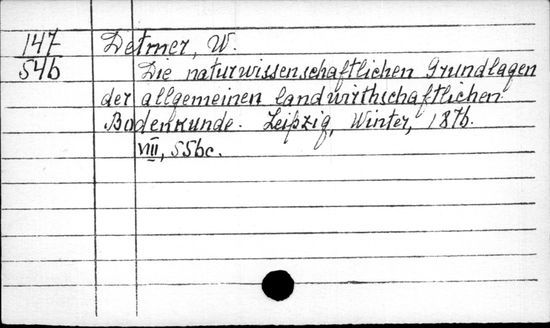 147 Detmer, W.
546 Die naturwissenschaftlichen Grundlagen
der allgemeinen landwirthschaftlichen
Bodenkunde. Leipzig, Winter, 1876.
VIII, 556c.